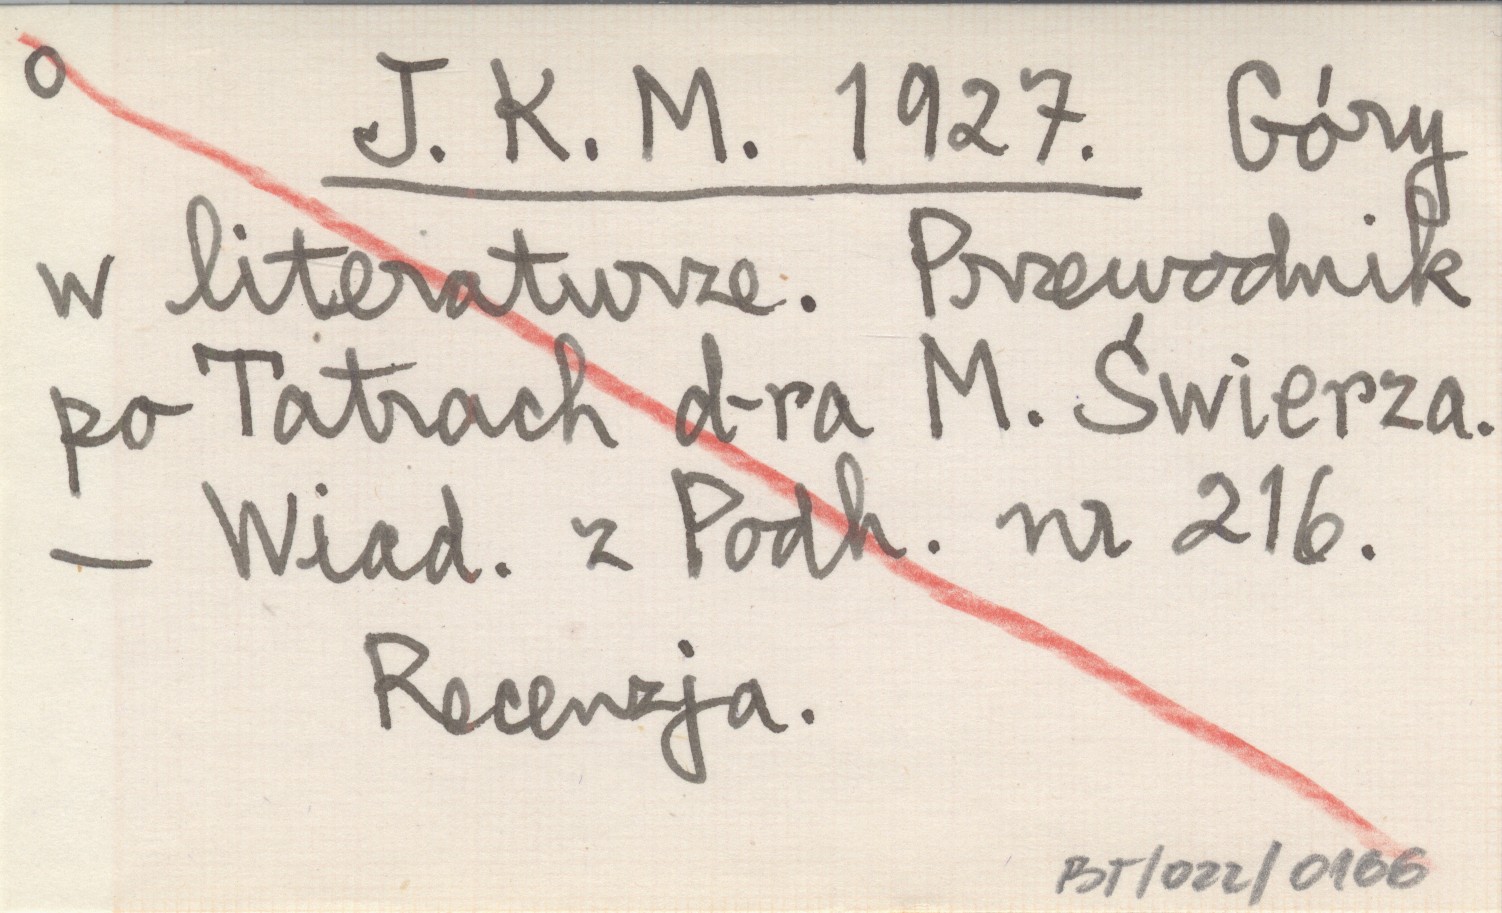 o J. K. M. 1927. Góry
w literaturze. Przewodnik
po Tatrach d-ra M. Świerza.
— Wiad. z Podh. nr 216.
Recenzja.
BT/022/0166